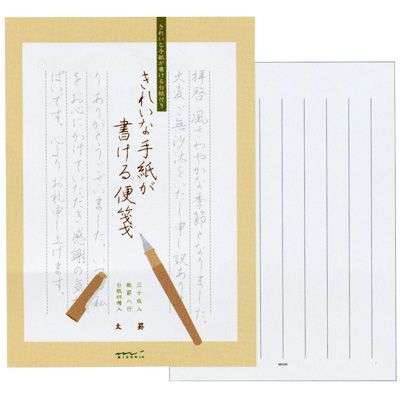 きれいな手紙が書ける台紙付き
拝啓 風さわやかな季節となりました。
大変ご無沙汰をいたし申し訳あり
きれいな手紙が
書ける便箋
りありがとうございました。い 私
をお心にかけていただき感謝の気
ぱいです。心よりお礼申し上げます。
三十枚入
縦罫八行
台紙四種入
太 罫
MIDORI
MIDORI